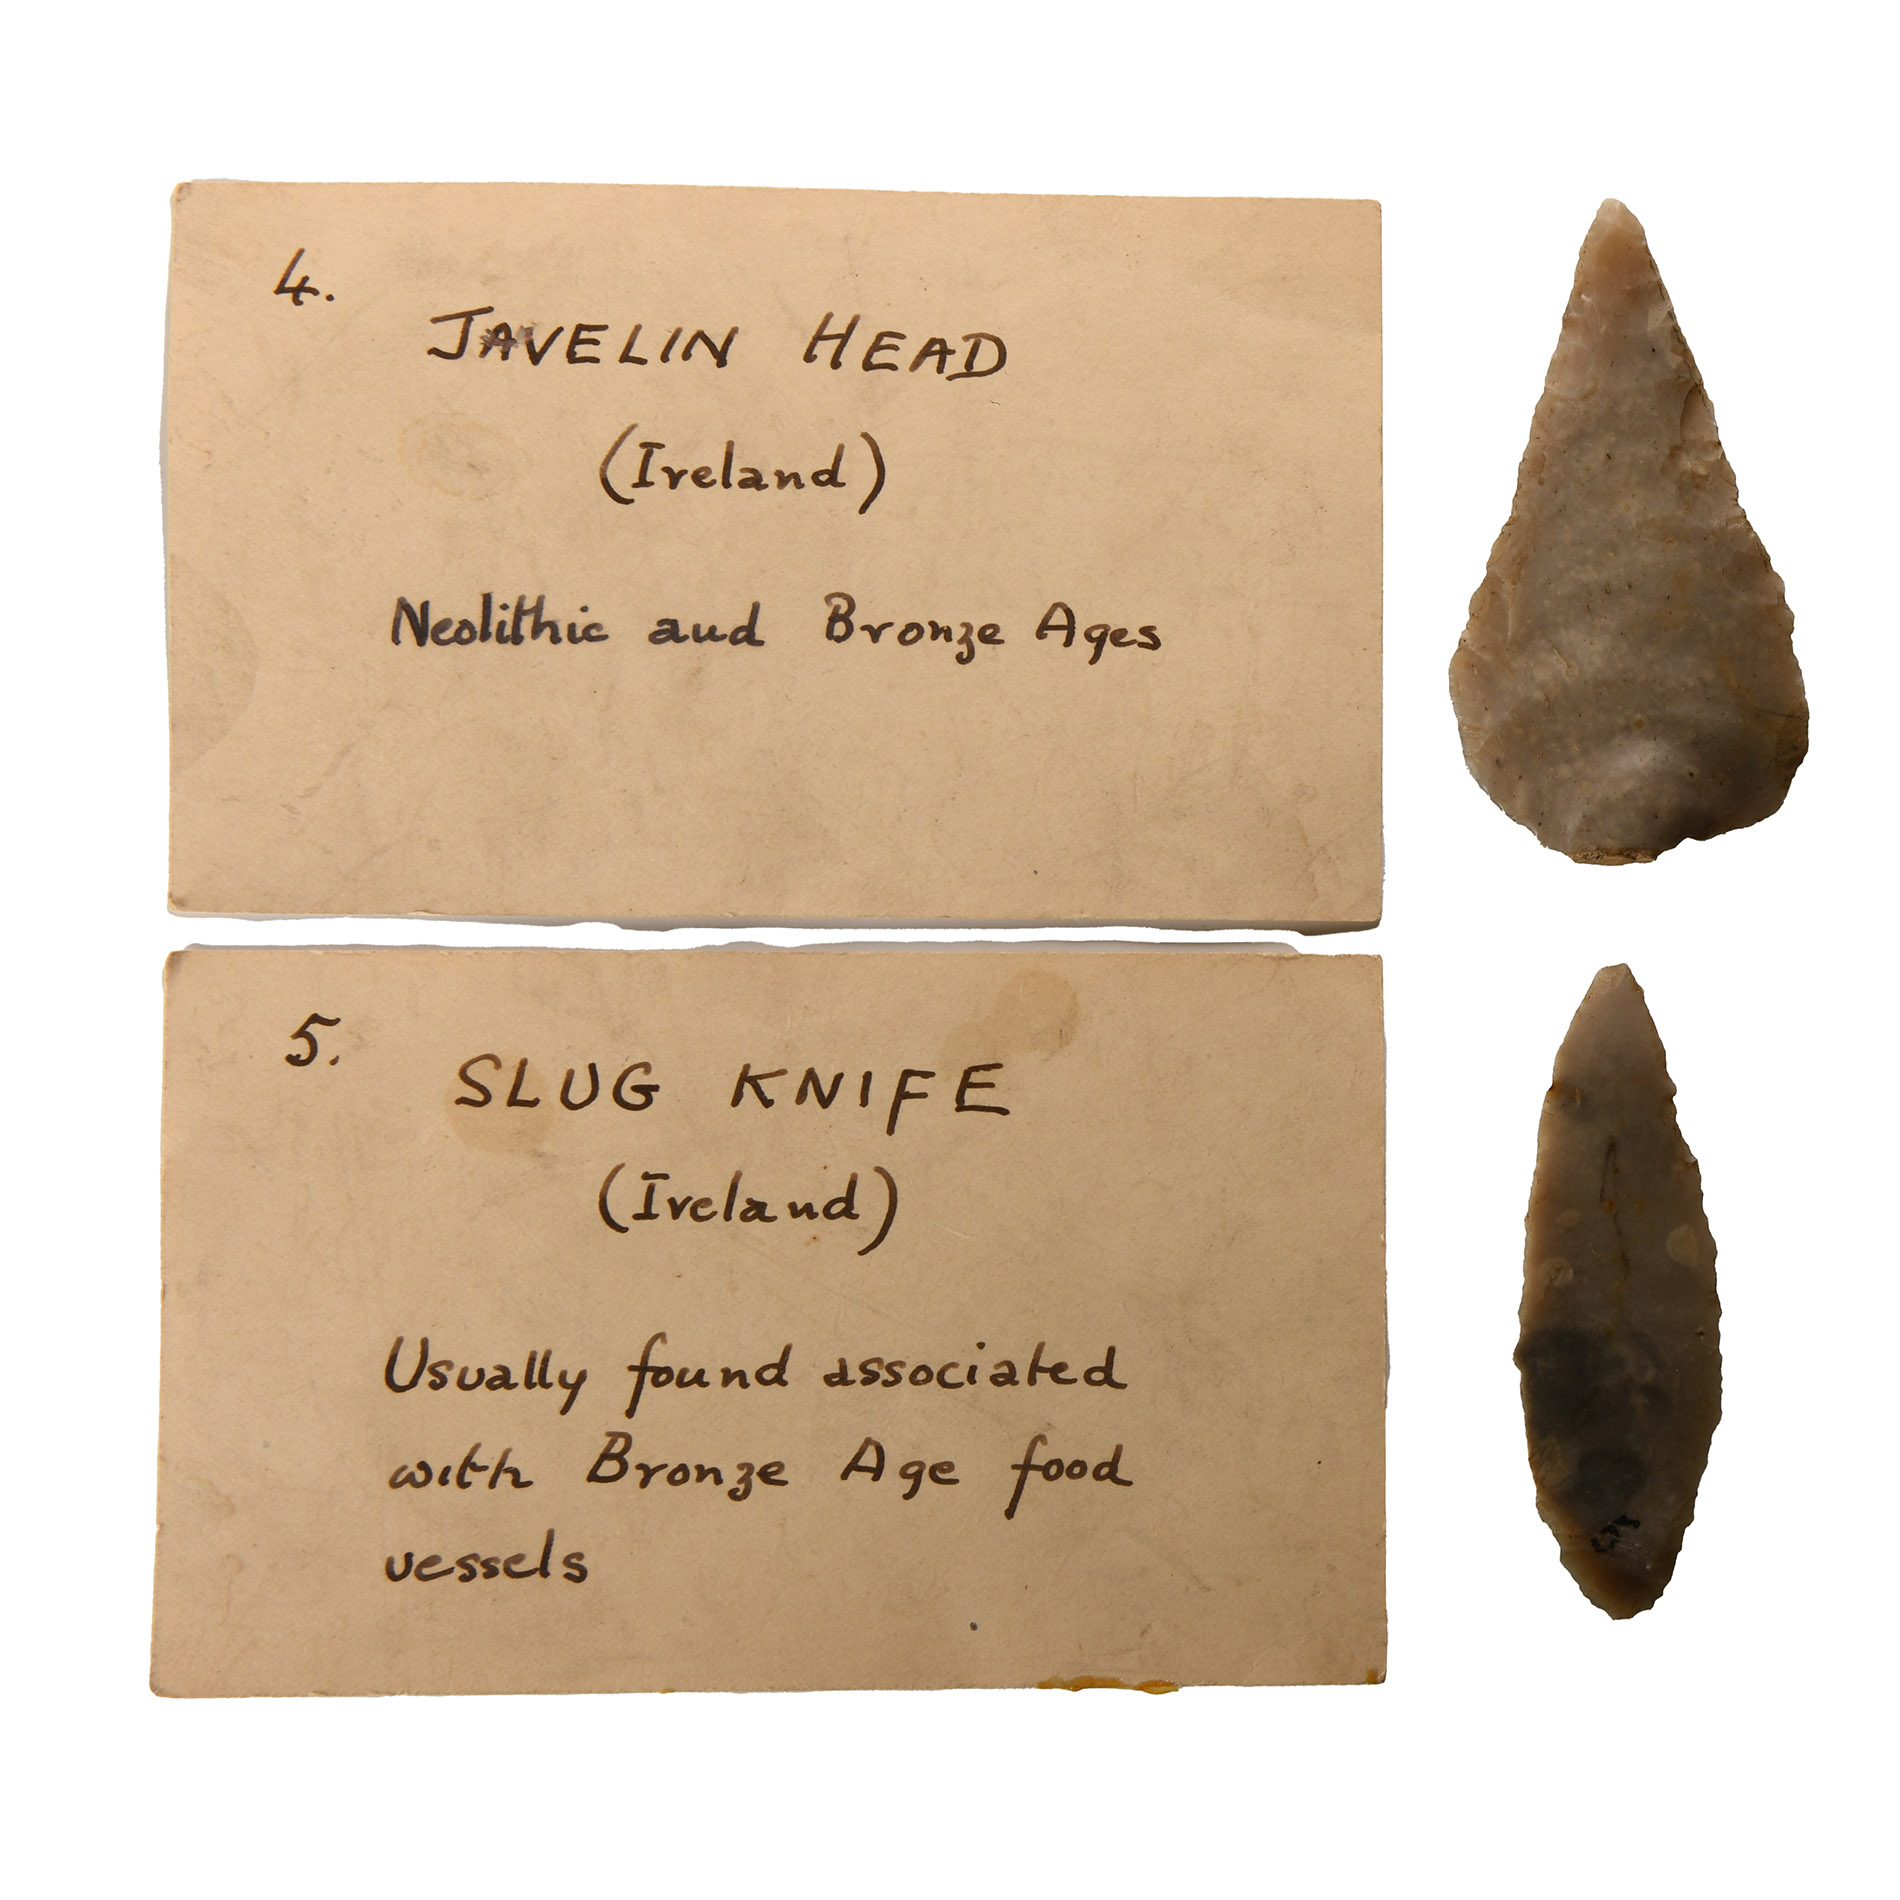 4.
JAVELIN HEAD
(Ireland)
Neolithic and Bronze Ages
5.
SLUG KNIFE
(Ireland)
Usually found associated
with Bronze Age food
vessels